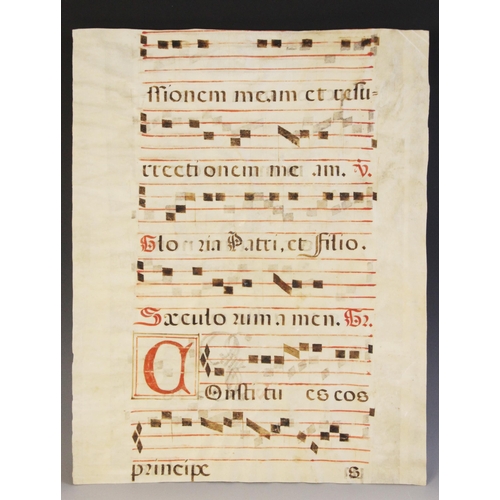 ssionem meam et resu=
rrectionem me am. V.
Gloria Patri, et Filio.
Sæculorum amen. Gr.
Constitu es eos
principe S